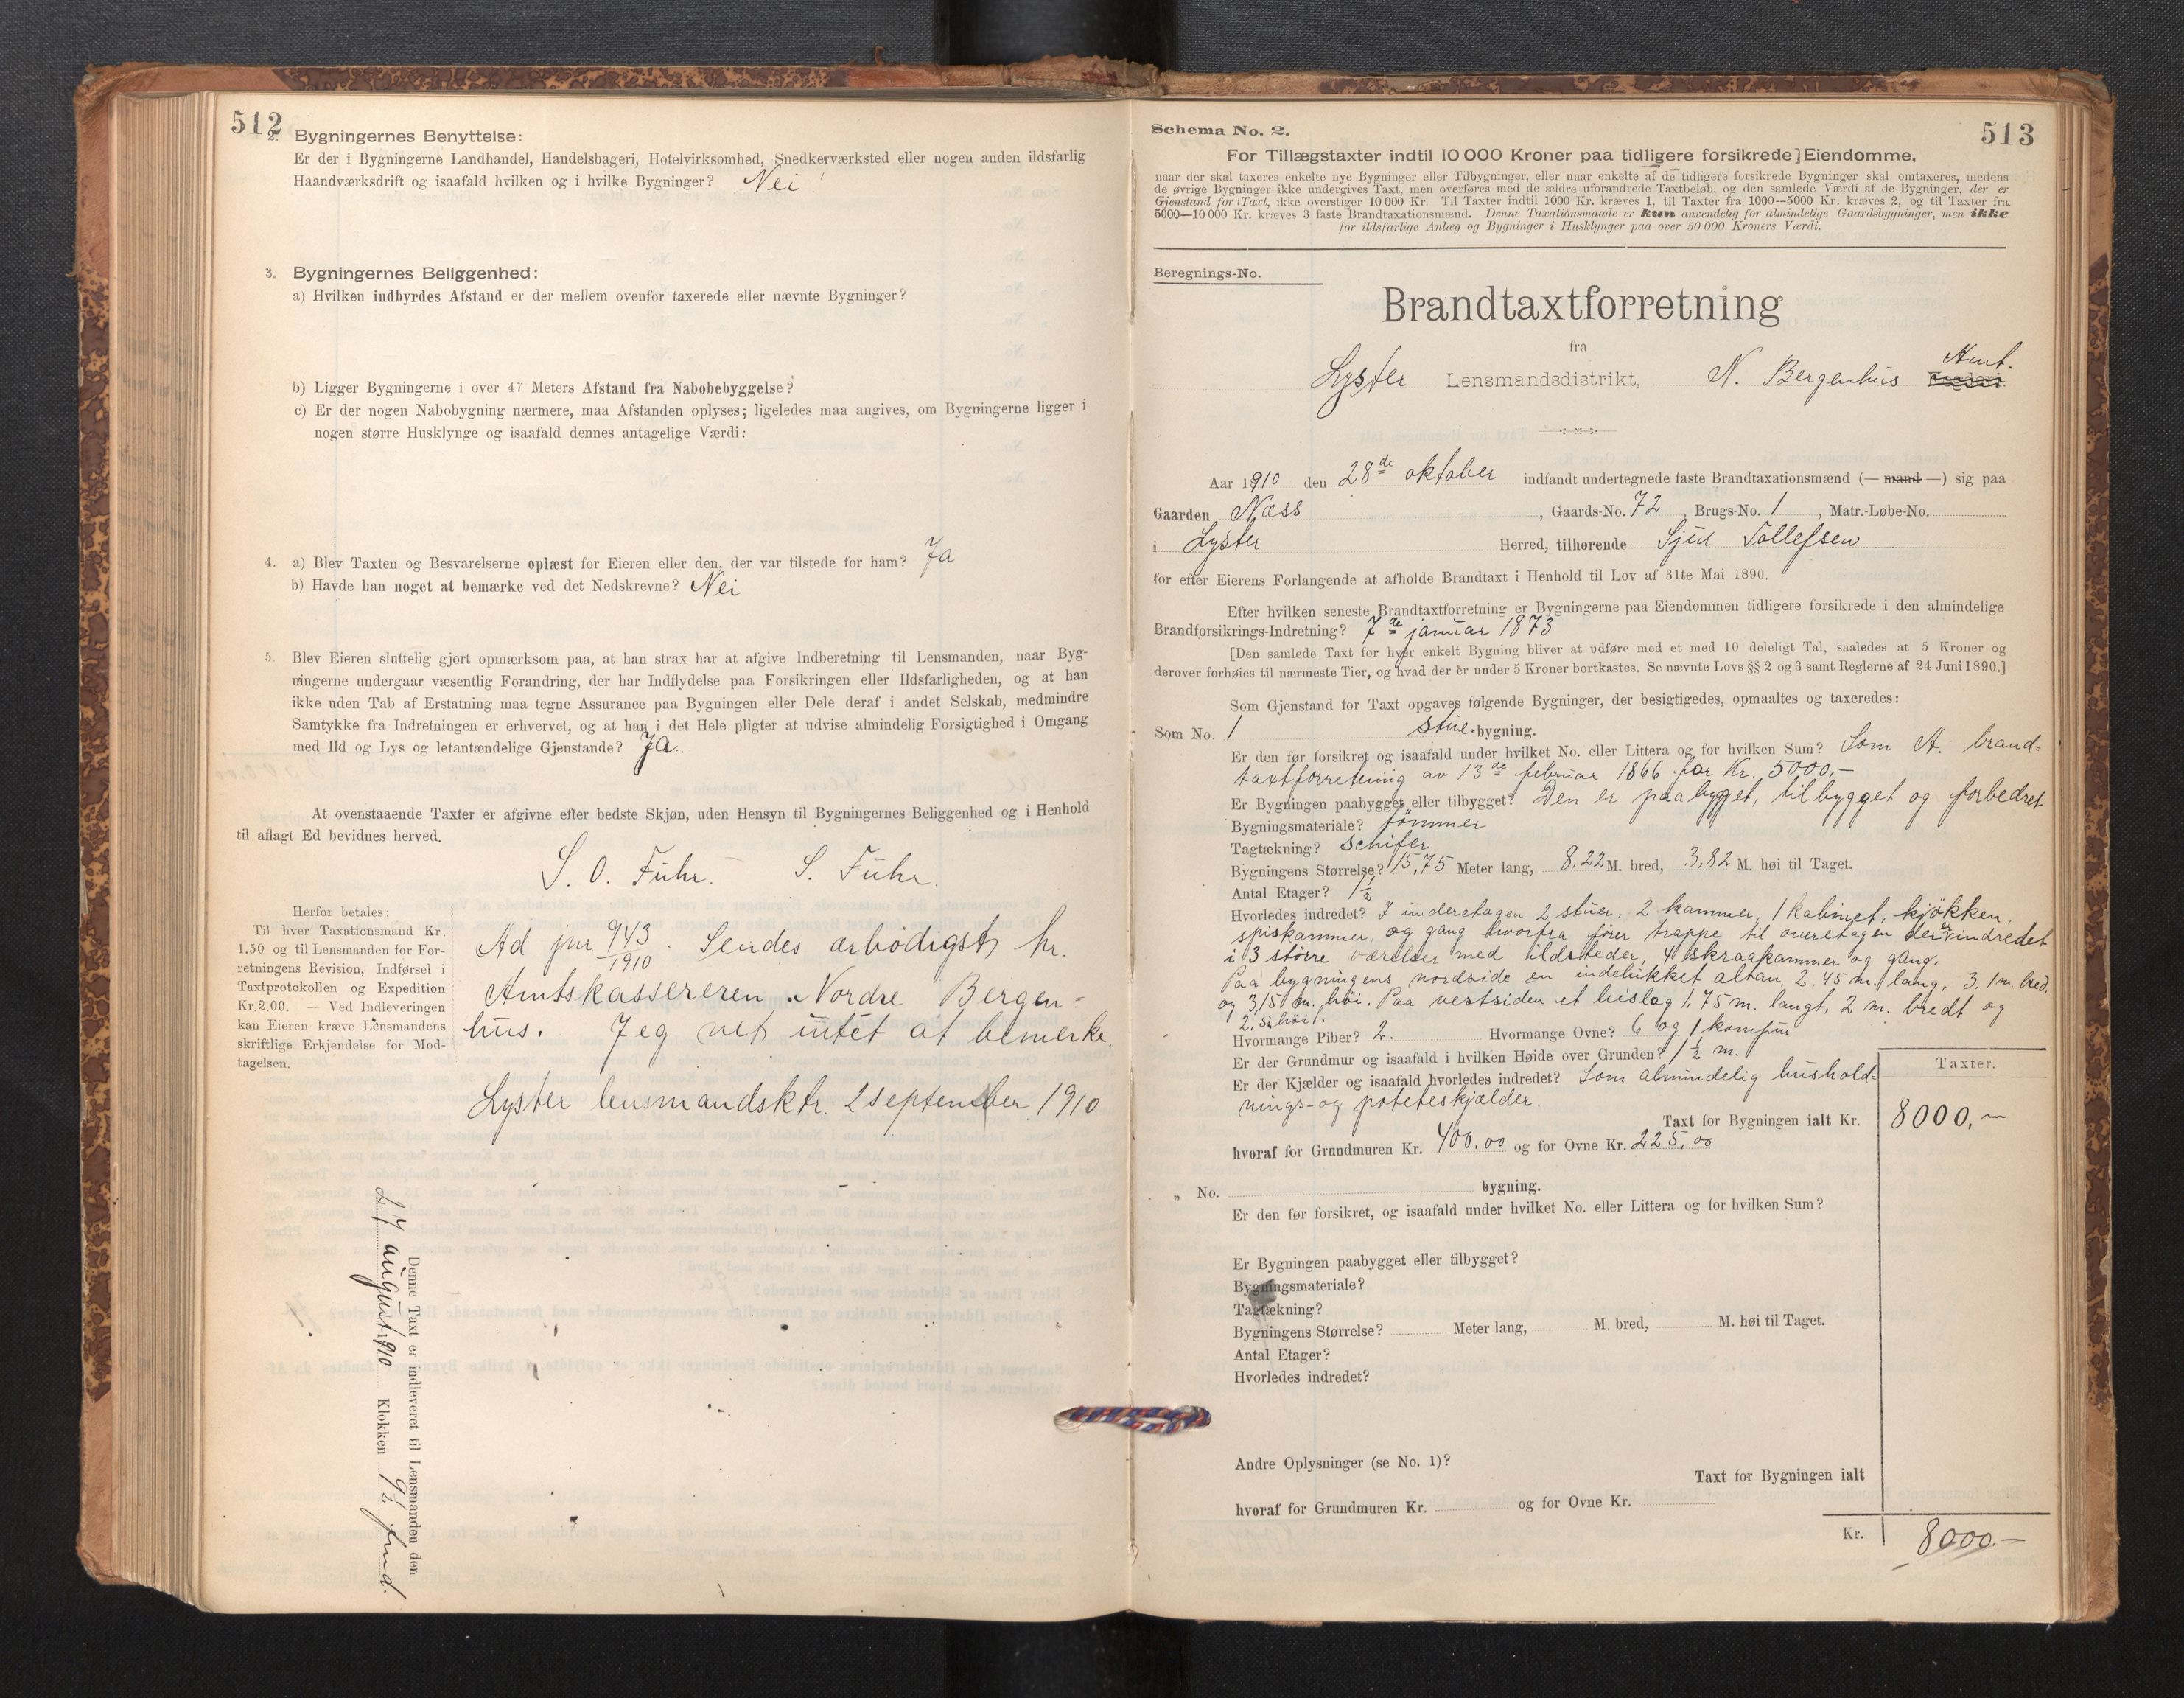 512
2. Bygningernes Benyttelse:
Er der i Bygningerne Landhandel, Handelsbageri, Hotelvirksomhed, Snedkerværksted eller nogen anden ildsfarlig
Haandværksdrift og isaafald hvilken og i hvilke Bygninger? Nei
3. Bygningernes Beliggenhed:
a) Hvilken indbyrdes Afstand er der mellem ovenfor taxerede eller nævnte Bygninger?
b) Ligger Bygningerne i over 47 Meters Afstand fra Nabobebyggelse?
c) Er der nogen Nabobygning nærmere, maa Afstanden oplyses; ligeledes maa angives, om Bygningerne ligger i
nogen større Husklynge og isaafald dennes antagelige Værdi:
4. a) Blev Taxten og Besvarelserne oplæst for Eieren eller den, der var tilstede for ham? Ja
b) Havde han noget at bemærke ved det Nedskrevne? Nei
5. Blev Eieren sluttelig gjort opmærksom paa, at han strax har at afgive Indberetning til Lensmanden, naar Byg-
ningerne undergaar væsentlig Forandring, der har Indflydelse paa Forsikringen eller Ildsfarligheden, og at han
ikke uden Tab af Erstatning maa tegne Assurance paa Bygningen eller Dele deraf i andet Selskab, medmindre
Samtykke fra Indretningen er erhvervet, og at han i det Hele pligter at udvise almindelig Forsigtighed i Omgang
med Ild og Lys og letantændelige Gjenstande? Ja.
At ovenstaaende Taxter er afgivne efter bedste Skjøn, uden Hensyn til Bygningernes Beliggenhed og i Henhold
til aflagt Ed bevidnes herved.
S. O. Fuhr. S. Fuhr.
Herfor betales:
Til hver Taxationsmand Kr.
1.50 og til Lensmanden for For-
retningens Revision, Indførsel i
Taxtprotokollen og Expedition
Kr. 2.00. — Ved Indleveringen
kan Eieren kræve Lensmandens
skriftlige Erkjendelse for Mod-
tagelsen.
Ad jnr. 943/1910. Sendes ærbödigst hr.
Amtskassereren Nordre Bergen-
hus. Jeg vet intet at bemerke.
Lyster lensmandsktr. 2 september 1910
Denne Taxt er indleveret til Lensmanden den
27 august 1910 Klokken 9½ fmd.
Schema No. 2.
513
For Tillægstaxter indtil 10 000 Kroner paa tidligere forsikrede] Eiendomme,
naar der skal taxeres enkelte nye Bygninger eller Tilbygninger, eller naar enkelte af de tidligere forsikrede Bygninger skal omtaxeres, medens
de øvrige Bygninger ikke undergives Taxt, men overføres med de ældre uforandrede Taxtbeløb, og den samlede Værdi af de Bygninger, der er
Gjenstand for Taxt, ikke overstiger 10 000 Kr. Til Taxter indtil 1000 Kr. kræves 1, til Taxter fra 1000—5000 Kr. kræves 2, og til Taxter fra
5000—10 000 Kr. kræves 3 faste Brandtaxationsmænd. Denne Taxationsmaade er kun anvendelig for almindelige Gaardsbygninger, men ikke
for ildsfarlige Anlæg og Bygninger i Husklynger paa over 50 000 Kroners Værdi.
Beregnings-No.
Brandtaxtforretning
fra
Lyster Lensmandsdistrikt, N. Bergenhus Amt.
Aar 1910 den 28de oktober indfandt undertegnede faste Brandtaxationsmænd (— mand —) sig paa
Gaarden Næss, Gaards-No. 72, Brugs-No. 1, Matr.-Løbe-No.
i Lyster Herred, tilhørende Sjul Tollefsen
for efter Eierens Forlangende at afholde Brandtaxt i Henhold til Lov af 31te Mai 1890.
Efter hvilken seneste Brandtaxtforretning er Bygningerne paa Eiendommen tidligere forsikrede i den almindelige
Brandforsikrings-Indretning? 7de januar 1873
[Den samlede Taxt for hver enkelt Bygning bliver at udføre med et med 10 deleligt Tal, saaledes at 5 Kroner og
derover forhøies til nærmeste Tier, og hvad der er under 5 Kroner bortkastes. Se nævnte Lovs §§ 2 og 3 samt Reglerne af 24 Juni 1890.]
Som Gjenstand for Taxt opgaves følgende Bygninger, der besigtigedes, opmaaltes og taxeredes:
Som No. 1 stue-bygning.
Er den før forsikret og isaafald under hvilket No. eller Littera og for hvilken Sum? Som A. brand-
taxtforretning av 13de februar 1866 for Kr. 5000,-
Er Bygningen paabygget eller tilbygget? Den er paabygget, tilbygget og forbedret
Bygningsmateriale? Tömmer
Tagtækning? Schifer
Bygningens Størrelse? 15,75 Meter lang, 8,22 M. bred, 3,82 M. høi til Taget.
Antal Etager? 1½
Hvorledes indredet? I underetagen 2 stuer, 2 kammer, 1 kabinet, kjökken,
spiskammer, og gang hvorfra förer trappe til overetagen der er indredet
i 3 större værelser med ildsteder, 4 skraakammer og gang.
Paa bygningens nordside en indelukket altan, 2,45 m. lang, 3.1 m. bred
og 3,15 m. höi. Paa vestsiden et bislag 1,75 m. langt, 2 m. bredt og
2,5 höit.
Hvormange Piber? 2. Hvormange Ovne? 6 og 1 komfur
Er der Grundmur og isaafald i hvilken Høide over Grunden? 1½ m.
Er der Kjælder og isaafald hvorledes indredet? Som almindelig hushold-
nings- og poteteskjælder.
Taxter.
Taxt for Bygningen ialt Kr. 8000,-
hvoraf for Grundmuren Kr. 400,00 og for Ovne Kr. 225,00
„ No. bygning.
Er den før forsikret, og isaafald under hvilket No. eller Littera og for hvilken Sum?
Er Bygningen paabygget eller tilbygget?
Bygningsmateriale?
Tagtækning?
Bygningens Størrelse? Meter lang, M. bred, M. høi til Taget.
Antal Etager?
Hvorledes indredet?
Andre Oplysninger (se No. 1)?
Taxt for Bygningen ialt
hvoraf for Grundmuren Kr. og for Ovne Kr.
Kr. 8000.-